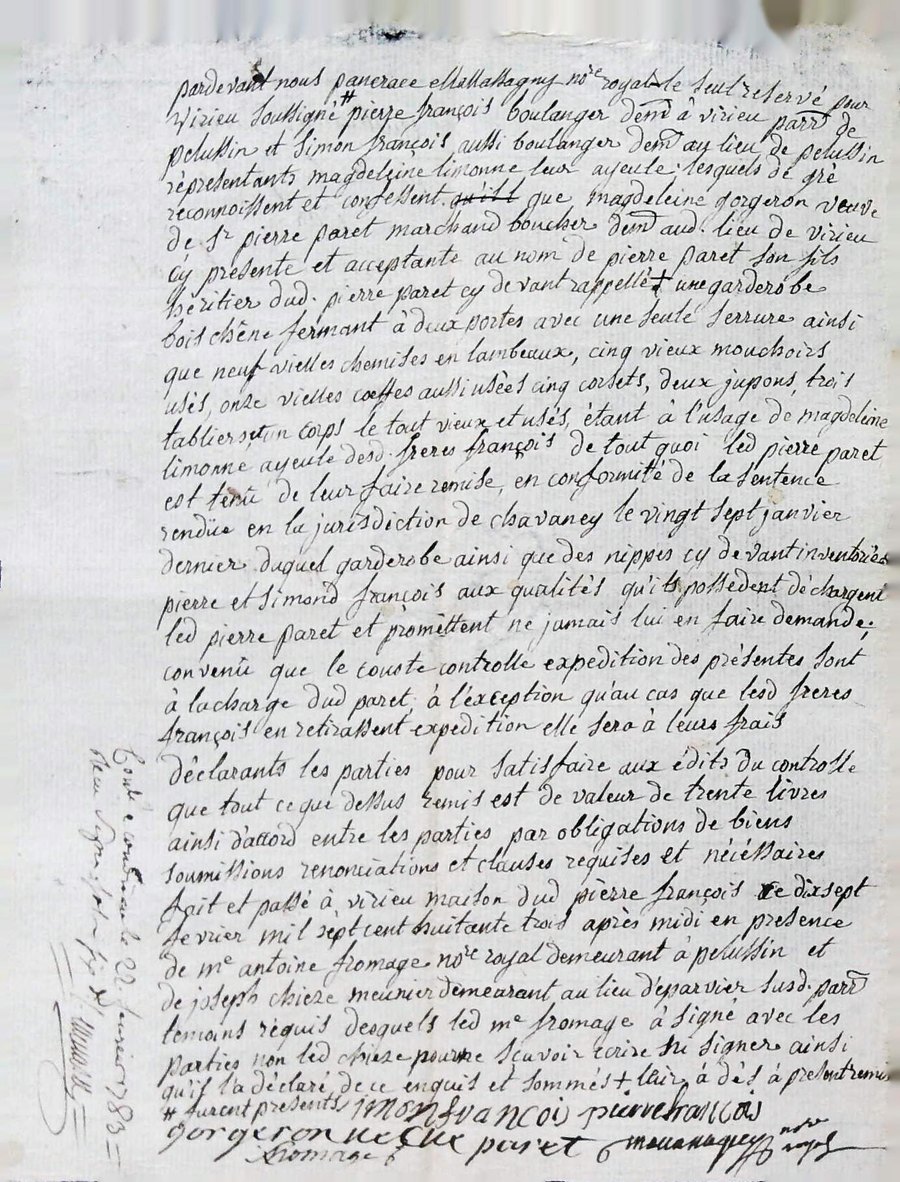 pardevant nous pancrace noʳᵉ royal le seul reservé pour
Virieu soussigné # pierre françois boulanger demᵗ à virieu parrᵉ de
pelussin et simon françois aussi boulanger demᵗ au lieu de pelussin
réprésentants magdeleine limonne leur ayeule; lesquels de gré
reconnoissent et confessent que magdeleine gorgeron veuve
de sʳ pierre paret marchand boucher demᵗ aud. lieu de virieu
cy presente et acceptante au nom de pierre paret son fils
héritier dud. pierre paret cy devant rappellé + une garderobe
bois chêne fermant à deux portes avec une seule serrure ainsi
que neuf vielles chemises en lambeaux, cinq vieux mouchoirs
usés, onze vielles coeffes aussi usées cinq corsets, deux jupons, trois
tabliers, un corps le tout vieux et usés, étant à l'usage de magdeleine
limonne ayeule desd. freres françois de tout quoi led pierre paret
est tenû de leur faire remise, en conformité de la sentence
rendüe en la jurisdiction de chavaney le vingt sept janvier
dernier duquel garderobe ainsi que des nippes cy devant inventoriées
pierre et simond françois aux qualités qu'ils possèdent déchargent
led pierre paret et promettent ne jamais lui en faire demande;
convenû que le couste controlle expedition des présentes sont
à la charge dud paret, à l'éxception qu'au cas que lesd freres
françois en retirassent expedition elle sera à leurs frais
déclarants les parties pour satisfaire aux édits du controlle
que tout ce que dessus remis est de valeur de trente livres
ainsi d'accord entre les parties par obligations de biens
soumissions renonciations et clauses requises et nécéssaires
fait et passé à virieu maison dud pierre françois ce dixsept
fevrier mil sept cent huitante trois après midi en presence
de mᵉ antoine fromage noʳᵉ royal demeurant à pelussin et
de joseph chieze meunier demearant au lieu d'éparvier susd. parrᵉ
temoins réquis desquels led mᵉ fromage à signé avec les
parties non led chieze pour ne sçavoir écrire ni signer ainsi
qu'il l'a déclaré, de ce enquis et sommés + leur à dés à présent remis
# furent presents simon françois pierre françois
gorgeron veuve paret noʳᵉ royal
fromage
le 22 fevrier 1783